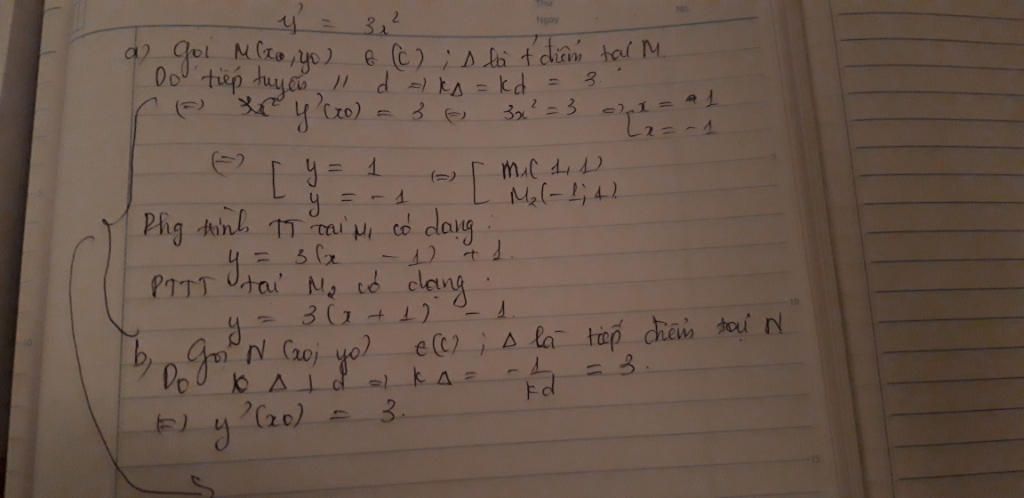 y' = 3x²
a) Gọi M(x0, y0) ∈ (C) ; Δ là t' điểm tại M.
Do tiếp tuyến // d => kΔ = kd = 3.
(=) y'(x0) = 3 (=) 3x² = 3 => [ x = 1
x = -1
(=) [ y = 1 (=) [ M1( 1, 1)
y = -1 M2(-1; 1)
Phg trình TT tại M1 có dạng :
y = 3(x - 1) + 1.
PTTT tại M2 có dạng :
y = 3(x + 1) - 1.
b, Gọi N (x0; y0) ∈(C) ; Δ là tiếp điểm tại N
Do Δ ⊥ d => kΔ = - 1/kd = 3.
(=) y'(x0) = 3.